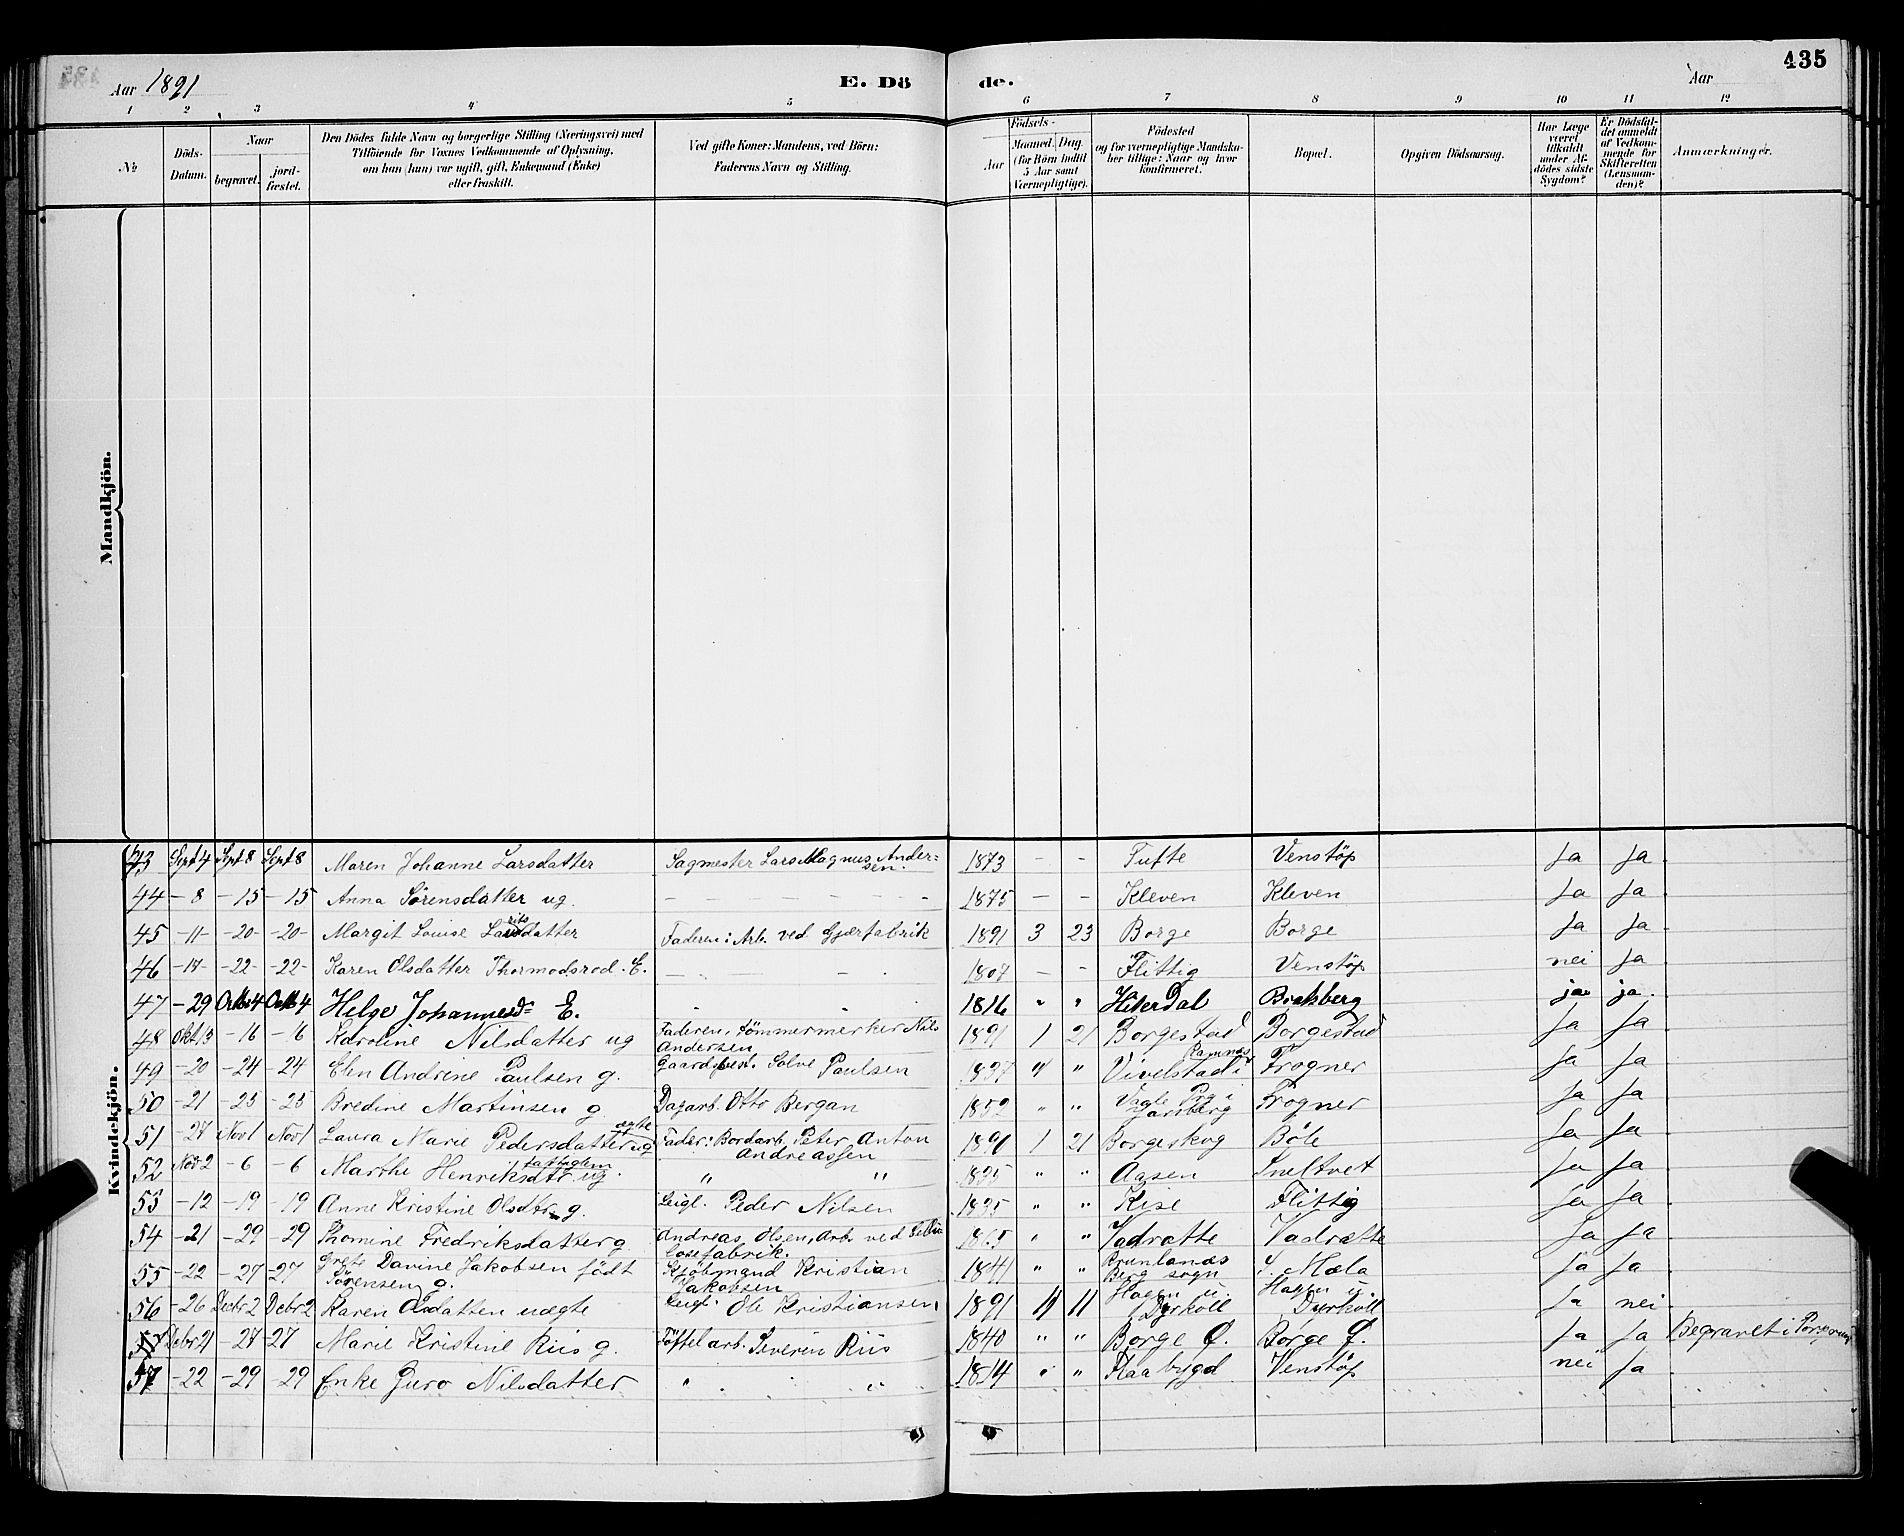 435
Aar 1891 E. Dö de. Aar
1 2 3 4 5 6 7 8 9 10 11 12
No Döds-Datum. Naar begravet. jord-fæstet. Den Dödes fulde Navn og borgerlige Stilling (Næringsvei) med Tilföiende for Voxnes Vedkommende af Oplysning, om han (hun) var ugift, gift, Enkemand (Enke) eller fraskilt. Ved gifte Koner: Mandens, ved Börn: Faderens Navn og Stilling. Födsels- Aar Maaned. Dag. (for Börn indtil 5 Aar samt Værnepligtige). Födested og for værnepligtige Mandskaber tillige: Naar og hvor konfirmeret. Bopæl. Opgiven Dödsaarsag. Har Læge været tilkaldt under Afdödes sidste Sygdom? Er Dödsfaldet anmeldt af Vedkommende for Skifteretten (Lensmanden)? Anmærkninger.
Mandkjön.
Kvindekjön.
43 Sept 4 Sept 8 Sept 8 Maren Johanne Larsdatter Sagmester Lars Magnus Andersen. 1873 - - Tufte Venstöp Ja Ja
44 - 8 - 15 - 15 Anna Sörensdatter ug. - - - - 1875 - - Kleven Kleven Ja Ja
45 - 11 - 20 - 20 - Margit Louise datter Faderen: Arb. ved Gjærfabrik 1891 3 23 Borge Borge Ja Ja
46 - 17 - 22 - 22 - Karen Olsdatter Thormodsrod. E. - - 1807 - - Flittig Venstöp nei Ja
47 - 29 Oktb 4 Oktb 4 Helge Johannesd= E. 1816 " " Hiterdal Bratsberg ja ja.
48 Okt 13 - 16 - 16 Karoline Nilsdatter ug Faderen, Tömmermerker Nils Andersen 1891 1 21 Borgestad Borgestad Ja Ja
49 - 20 - 24 - 24 Elen Andrine Paulsen g. Gaardbest. Solve Paulsen 1837 " " Vivelstad i Ramnæs Frogner Ja Ja
50 - 21 - 25 - 25 Bredine Martinsen g. Dagarb. Otto Bergan 1852 " " Vaale Prg i Jarlsberg Frogner Ja Ja
51 - 27 Nov 1 Nov 1 Laura Marie Pedersdatter ægte ug Fader: Bordarb. Peter Anton Andreassen 1890 1 21 Borgeskog Böle Ja Ja
52 Nov 2 - 6 - 6 Marthe Henriksdtr fattiglem ug. " " 1835 " " Aasen Sneltvet Ja Ja
53 - 12 - 19 - 19 Anne Kristine Olsdtr g. Leigl. Peder Nilsen 1835 " " Kise Flittig Ja Ja
54 - 21 - 29 - 29 Thomine Fredriksdatter g Andreas Olsen, Arb. ved Cellulosefabrik. 1865 " " Vadrette Vadrette Ja Ja
55 - 22 - 27 - 27 Grete Davine Jakobsen född Sörensen g. Kjöbmand Kristian Jakobsen 1841 " " Brunlanæs Berg sogn S. Mæla Ja Ja
56 - 26 Decbr 2 Debr 2 Karen Olsdatter uægte Leigl. Ole Kristiansen 1891 11 11 Hagen u. Dyrkoll Hagen u. Dyrkoll Ja nei
57 Debr 21 - 27 27 Marie Kristine Riis g. Töffelarb. Severin Riis 1840 " " Borge Ö. Borge Ö. Ja Ja Begravet i Porsgrund
57 - 22 - 29 - 29 Enke Guro Nilsdatter " " 1814 " " Flaabygd Venstöp nei Ja